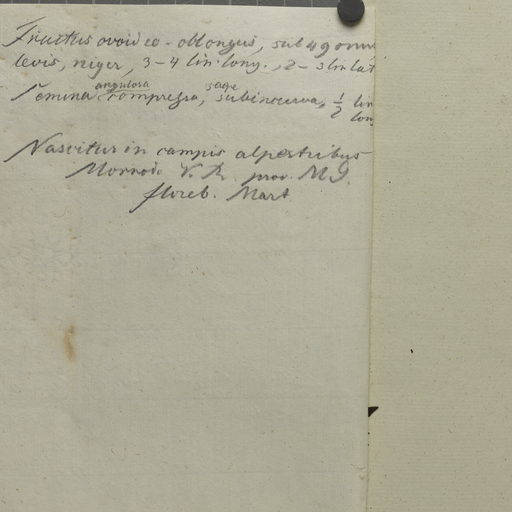 Fructus ovoideo-oblongus, sub 4gonus
levis, niger, 3-4 lin. long., 2-3 lin. lat
angulosa saepe
Semina compressa, subincurva, ½ lin
long
Nascitur in campis alpestribus
V. R. prov. M G.
floreb. Mart